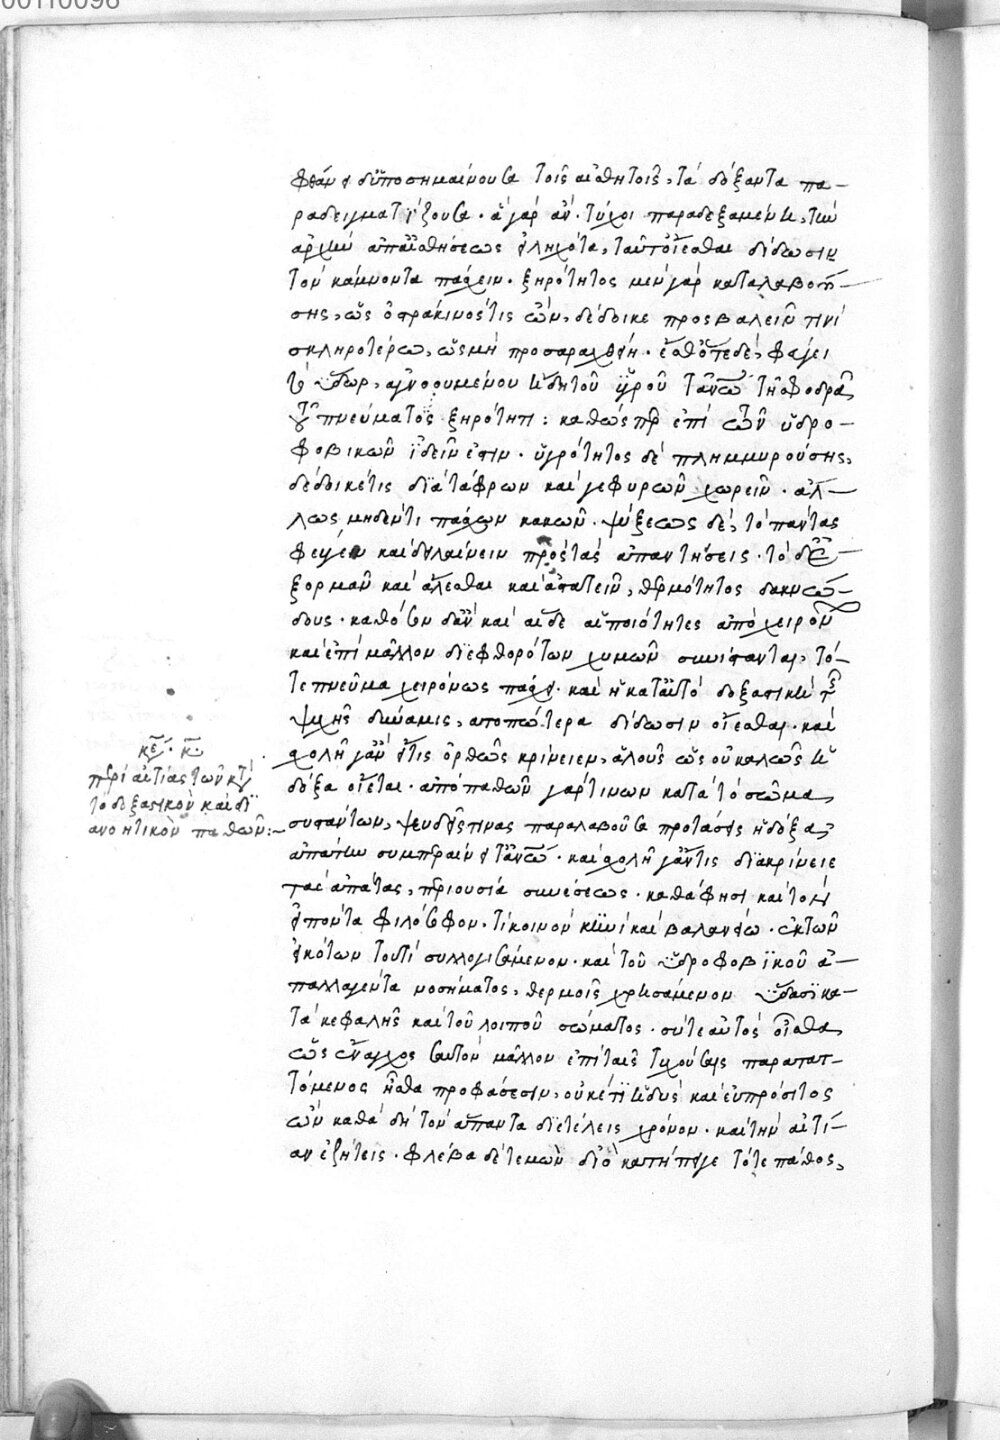 00110098
φθάνει δι' ὑποσημαίνουσα τοῖς αἰσθητοῖς, τὰ δόξαντα πα-
ραδειγματίζουσα. ἃ γὰρ ἂν τύχοι παραδεξαμένη, τὴν
ἀρχὴν ἀπ' αἰσθήσεως εἰληχότα, ταῦτ' οἴεσθαι δίδωσιν
τὸν κάμνοντα πάσχειν. ξηρότητος μὲν γὰρ καταλαβού-
σης, ὡς ὀστράκινός τις ὢν, δέδοικε προσβαλεῖν τινὶ
σκληροτέρω, ὡς μὴ προσαραχθείη. ἔσθ' ὅτε δὲ, φεύγει
τὸ ὕδωρ, ἀγνοουμένου ἤδη τοῦ ὑγροῦ τῇ σφοδρᾷ
τοῦ πνεύματος ξηρότητι: καθώσπερ ἐπὶ τῶν ὑδρο-
φοβικῶν ἰδεῖν ἐστιν. ὑγρότητος δὲ πλημμυρούσης,
δέδοικέ τις διὰ τάφρων καὶ γεφυρῶν χωρεῖν. ἄλ-
λως μηδέν τι πάσχων κακῶν. ψύξεως δὲ, τὸ πάντας
φεύγειν καὶ δυσμεναίνειν πρὸς τὰς ἀπαντήσεις. τὸ δὲ ἐ-
ξορμᾶν καὶ ἅλεσθαι καὶ ἀπατεῖν, θερμότητος δακνώ-
δους. καθόσον δ' ἂν καὶ αἵδε αἱ ποιότητες ἀπὸ χειρόν
καὶ ἐπὶ μᾶλλον διεφθορότων χυμῶν συνίστανται, τό-
τε πνεῦμα χειρόνως πάσχει. καὶ ἡ κατ' αὐτὸ δοξαστικὴ τῆς
ψυχῆς δύναμις, ἀτοπώτερα δίδωσιν οἴεσθαι. καὶ
σχολῇ γ' ἂν εἴ τις ὀρθῶς κρίνειεν, ἄλλους ὡς οὐ καλῶς ἡ
δόξα οἴεται. ἀπὸ παθῶν γάρ τινων κατὰ τὸ σῶμα
συστάντων, ψευδεῖς τινας παραλαβοῦσα προτάσεις ἡ δόξα,
ἀπάτην συμπεραίνει. καὶ σχολῇ γ' ἄν τις διακρίνειε
τὰς ἀπάτας, περιουσία συνέσεως. καθά φησι καὶ τὸν
εἰπόντα φιλόσοφον. τί κοινὸν κυνὶ καὶ βαλανείω. ἐκ τῶν
εἰκότων τουτὶ συλλογισάμενον. καὶ τοῦ ὑδροφοβικοῦ ἀ-
παλλαγέντα νοσήματος, θερμοῖς χρησάμενον ὕδασι κα-
τὰ κεφαλῆς καὶ τοῦ λοιποῦ σώματος. σύ τε αὐτὸς οἶσθα,
ὡς ἔναγχος σαυτὸν μᾶλλον ἐπὶ ταῖς τυχούσαις παραπατ-
τόμενος ᾖσθα προφάσεσιν, οὐκέτι ἡδὺς καὶ εὐπρόσιτος
ὢν καθὰ δὴ τὸν ἅπαντα διετέλεις χρόνον. καὶ τὴν αἰτί-
αν ἐζήτεις. φλέβα δὲ τεμὼν διὸ κατήπειγε τότε πάθος,
κεφ. κʹ
περὶ αἰτίας τῶν κατὰ
τὸ δοξαστικὸν καὶ δι
ανοητικὸν παθῶν:~